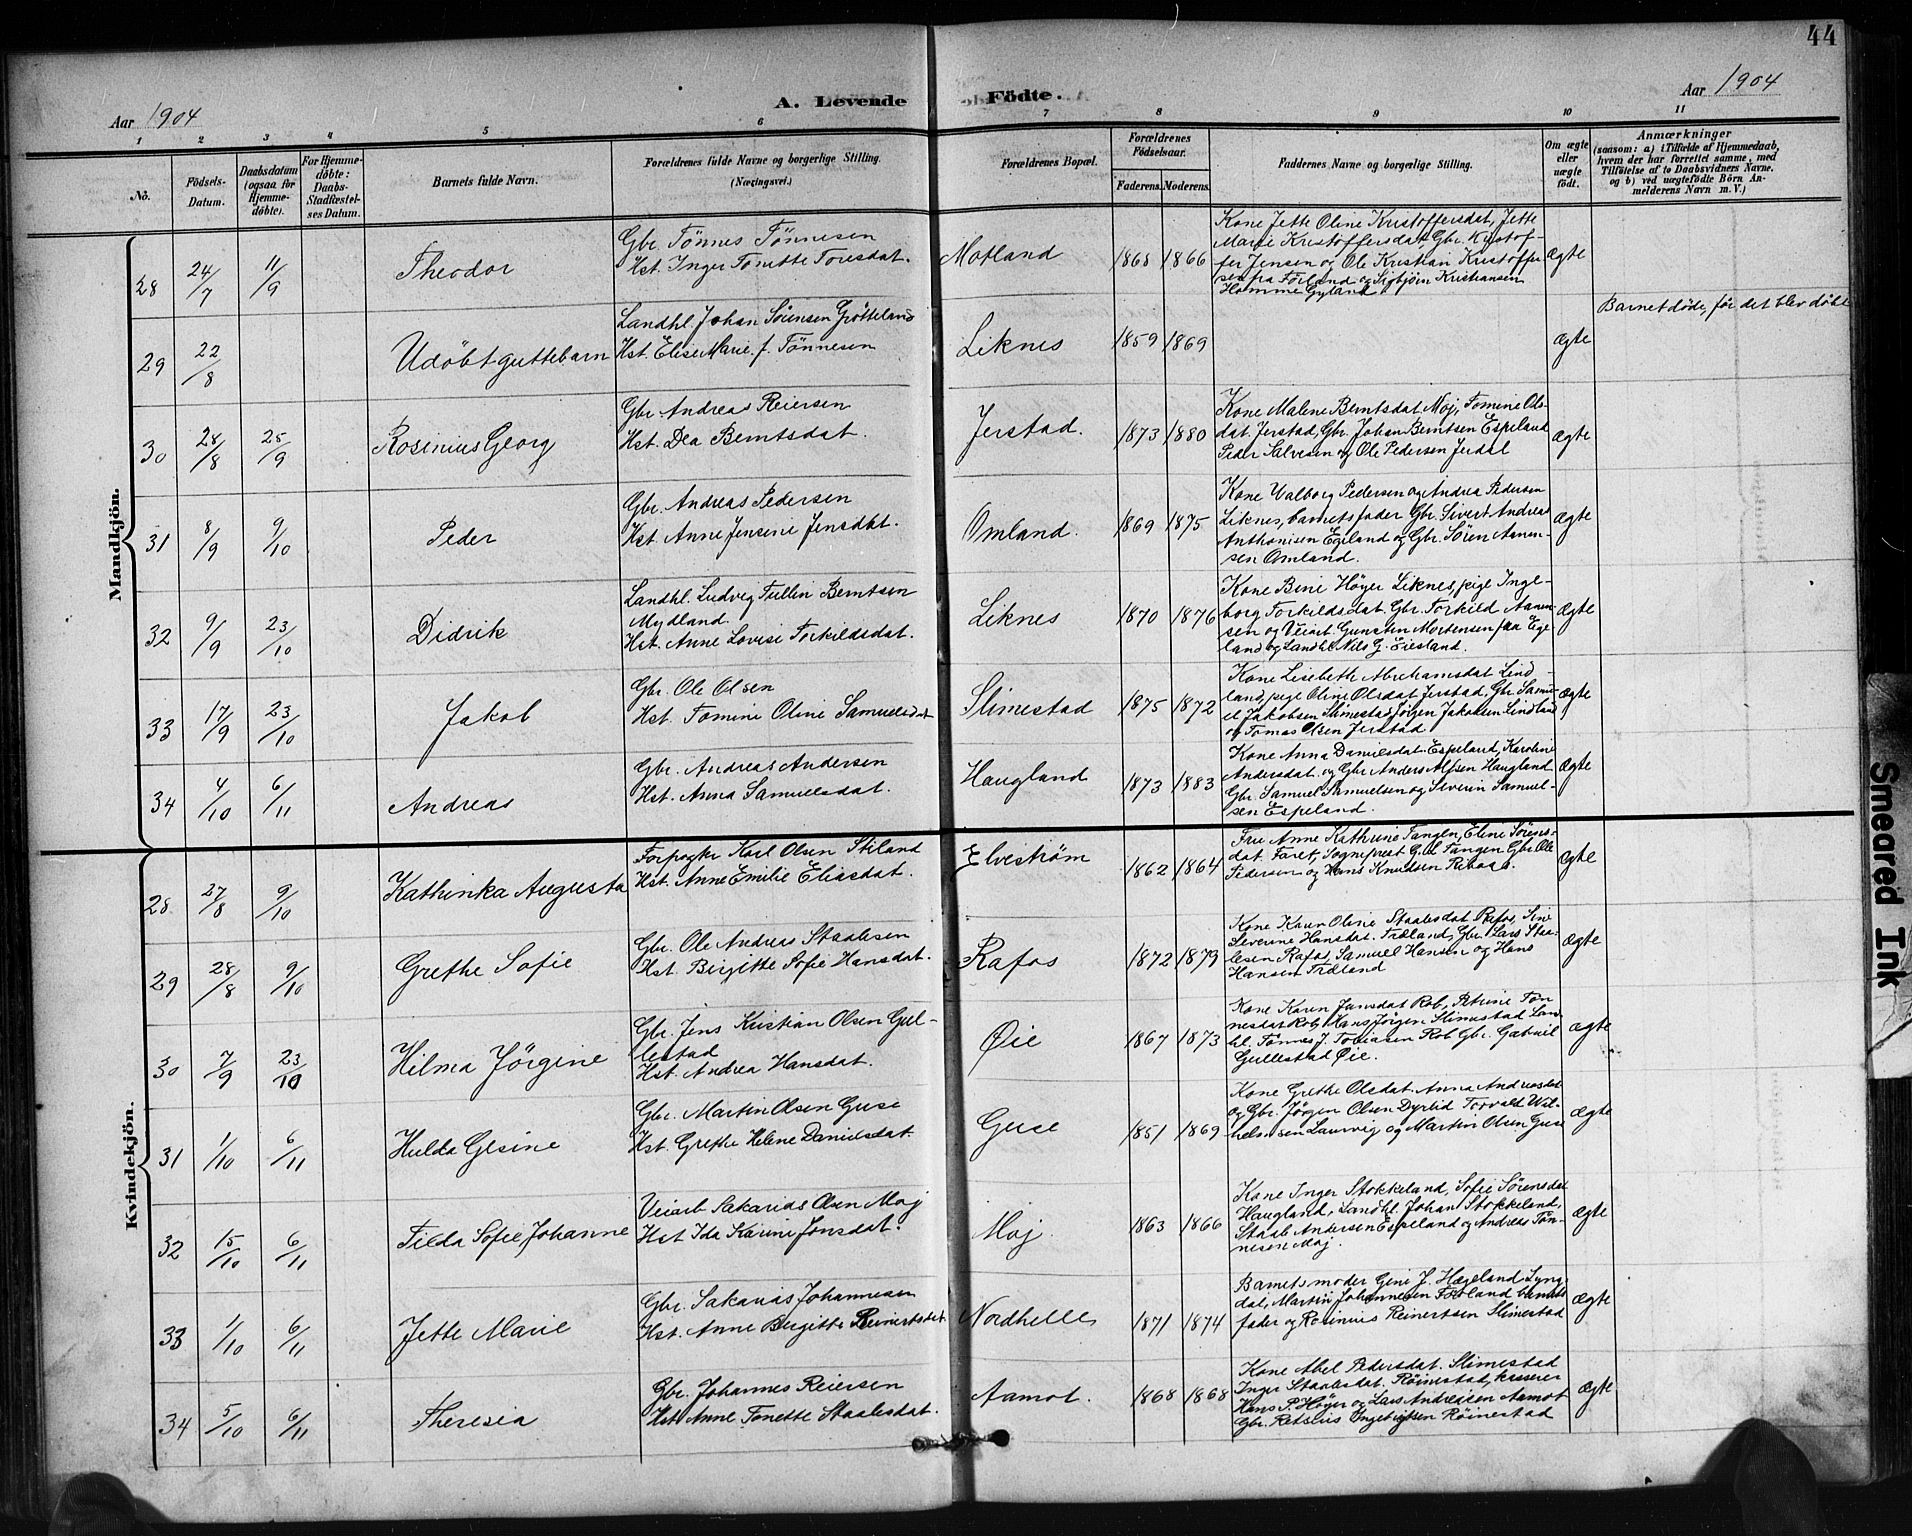 44
Aar 1904
A. Levende
Födte.
Aar 1904
1 2 3 4 5 6 7 8 9 10 11
No.
Födsels-
Datum.
Daabsdatum
(ogsaa for
Hjemme-
döbte).
For Hjemme-
döbte:
Daabs-
Stadfæstel-
ses Datum.
Barnets fulde Navn.
Forældrenes fulde Navne og borgerlige Stilling.
(Næringsvei.)
Forældrenes Bopæl.
Forældrenes
Födselsaar.
Faderens.
Moderens.
Faddernes Navne og borgerlige Stilling.
Om ægte
eller
uægte
födt.
Anmærkninger
(saasom: a) i Tilfælde af Hjemmedaab,
hvem der har forrettet samme, med
Tilföielse af to Daabsvidners Navne,
og b) ved uægtefödte Börn An-
melderens Navn m. V.)
Mandkjön.
28 24/7 11/9 Theodor
Gbr. Tönnes Tönnesen
Hst. Inger Tonette Toresdat.
Motland 1868 1866
Kone Jette Oline Kristoffersdat, Jette
Marie Kristoffersdat, Gbr. Kristof-
fer Jensen og Ole Kristian Kristoffer-
sen fra Förland og Sigbjörn Kristiansen
Homme Gyland
Ægte
29 22/8 Udöbt guttebarn
Landhl. Johan Sörensen Grötteland
Hst. Elise Marie f. Tönnesen
Liknes 1859 1869
Ægte
Barnet döde, för det blev döbt
30 28/8 25/9 Rosinius Georg
Gbr. Andreas Reiersen
Hst. Dea Berntsdat.
Jerstad. 1873 1880
Kone Malene Berntsdat Moj, Tomine Ols-
dat. Jerstad, Gbr. Johan Berntsen Espeland
Peder Salvesen og Ole Pedersen Jerdal
Ægte
31 8/9 9/10 Peder
Gbr. Andreas Pedersen
Hst. Anne Jensine Jensdat.
Omland. 1869 1875
Kone Valborg Pedersen og Andrea Pedersen
Liknes, barnets fader Gbr. Sivert Andreas
Anthonisen Egeland og Gbr. Sören Aanen-
sen Omland.
Ægte
32 9/9 23/10 Didrik
Landhl. Ludvig Tullin Berntsen
Mydland.
Hst. Anne Lovise Torkildsdat.
Liknes 1870 1876
Kone Bine Höyer Liknes, pige Inge-
borg Torkildsdat. Gbr. Torkild Aanen-
sen og Veiarb. Gunsten Mortensen fra Ege-
land og Landhl. Nils G. Eiesland.
Ægte
33 17/9 23/10 Jakob
Gbr. Ole Olsen
Hst. Tomine Oline Samuelsdat
Slimestad 1875 1872
Kone Lisebeth Abrahamsdat Lind-
land, pige Oline Olsdat Jerstad, Gbr. Samu-
el Jakobsen Slimestad Jörgen Jakobsen Lindland
og Tomas Olsen Jerstad
Ægte
34 4/10 6/11 Andreas
Gbr. Andreas Andersen
Hst. Anna Samuelsdat.
Haugland 1873 1883
Kone Anna Danielsdat. Espeland, Karoline
Andersdat. og Gbr. Anders Alfsen Haugland
Gbr. Samuel Samuelsen og Severin Samuel-
sen Espeland.
Ægte
Kvindekjön.
28 27/8 9/10 Kathinka Augusta
Forpagter Karl Olsen Stiland
Hst. Anne Emilie Eliasdat.
Elveström 1862 1864
Fru Anne Kathrine Tangen, Eline Sörens-
dat. Faret, Sogneprest Tangen Gbr. Ole
Pedersen og Hans Knudsen
Ægte
29 28/8 9/10 Grethe Sofie
Gbr. Ole Andreas Staalesen
Hst. Birgitte Sofie Hansdat.
Rafos 1872 1879
Kone Karen Oline Staalesdat Rafos, Sine
Severine Hansdat. Træland, Gbr. Lars Staa-
lesen Rafos, Samuel Hansen og Hans
Hansen Træland
Ægte
30 7/9 23/10 Hilma Jörgine
Gbr. Jens Kristian Olsen Gul-
lestad
Hst. Andrea Hansdat.
Öie 1867 1873
Kone Karen Jansdat Rob, Petrine Tön-
nesdat Rob, Hans Jörgen Slimestad Lan-
hl. Tönnes J. Tobiasen Rob Gbr. Gabriel
Gullestad Öie.
Ægte
31 1/10 6/11 Hulda Gesine
Gbr. Martin Olsen Guse
Hst. Grethe Helene Danielsdat.
Guse 1851 1869
Kone Grethe Olsdat. Anna Andreasdat
og Gbr. Jörgen Olsen Dyrlid Torvald Wil-
helmsen Laurvig og Martin Olsen Guse
Ægte
32 15/10 6/11 Tilda Sofie Johanne
Veiarb Sakarias Olsen Moj
Hst Ida Karine Jonsdat.
Moj. 1863 1866
Kone Inger Stokkeland, Sofie Sörensdat
Haugland, Landhl. Johan Stokkeland,
Staale Andersen Espeland og Andreas Tön-
nesen Moj.
Ægte
33 1/10 6/11 Jette Marie
Gbr. Sakarias Johannesen
Hst. Anne Birgitte Reinertsdat.
Nordhelle 1871 1874
Barnets moder Gine J. Hægeland Lyng-
dal, Martin Johannesen Förland barnets
fader og Rosinius Reinertsen Slimestad
Ægte
34 5/10 6/11 Theresia
Gbr. Johannes Reiersen
Hst Anne Tonette Staalesdat.
Aamot. 1868 1868
Kone Abel Pedersdat. Slimestad
Inger Staalesdat. Röinestad, kasserer
Hans P. Höyer og Lars Andreasen Aamot
Gbr. Retslius Ingebrigtsen Röinestad
Ægte
Smeared Ink